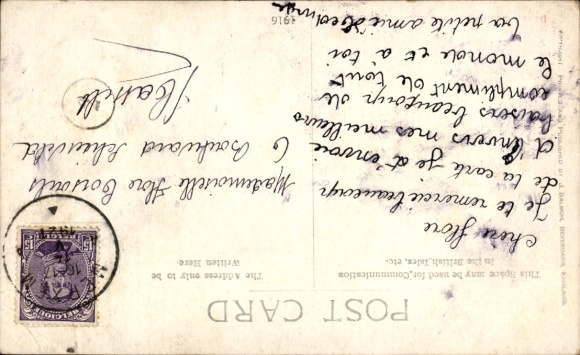 POST CARD
This Space may be used for Communication
in the British Isles, etc.
The Address only to be
Written Here
Chère Flore
Je te remercie beaucoup
de ta carte je t'envoie
d'Anvers mes meilleurs
baisers beaucoup de
compliment de tout
le monde et à toi
ta petite amie Jeanne
Mademoiselle Flore
6 Boulevard
Hasselt
1916
15
BELGIQUE
1921